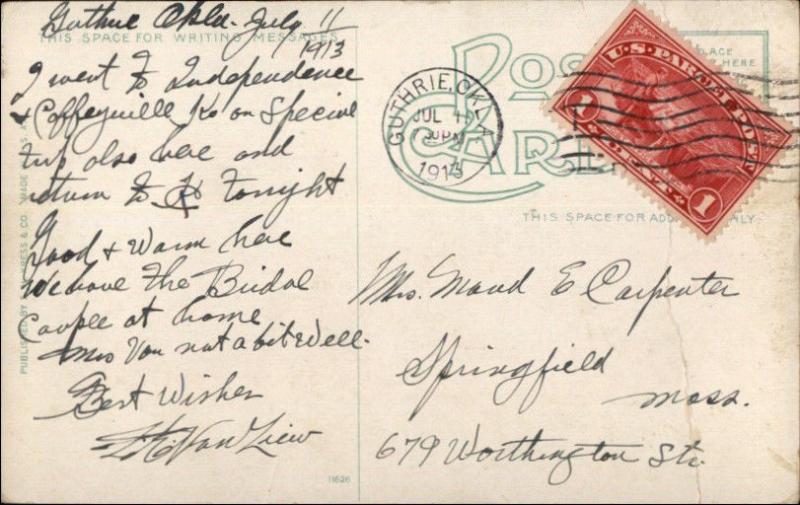 Guthrie Okla. July 11
THIS SPACE FOR WRITING MESSAGES
1913
I went to Independence
& Coffeyville Ks on Special
also here and
return to K tonight
Good & Warm here
We have The Bridal
Couple at home
Mrs Van not a bit Well.
Best Wishes
Van Liew
PUBLISHED BY
11626
POST CARD
PLACE
HERE
GUTHRIE, OKLA.
JUL 11
PM
1913
U.S. PARCEL POST
1 CENT 1
THIS SPACE FOR ADD NLY
Mrs. Maud E Carpenter
Springfield
Mass.
679 Worthington St.